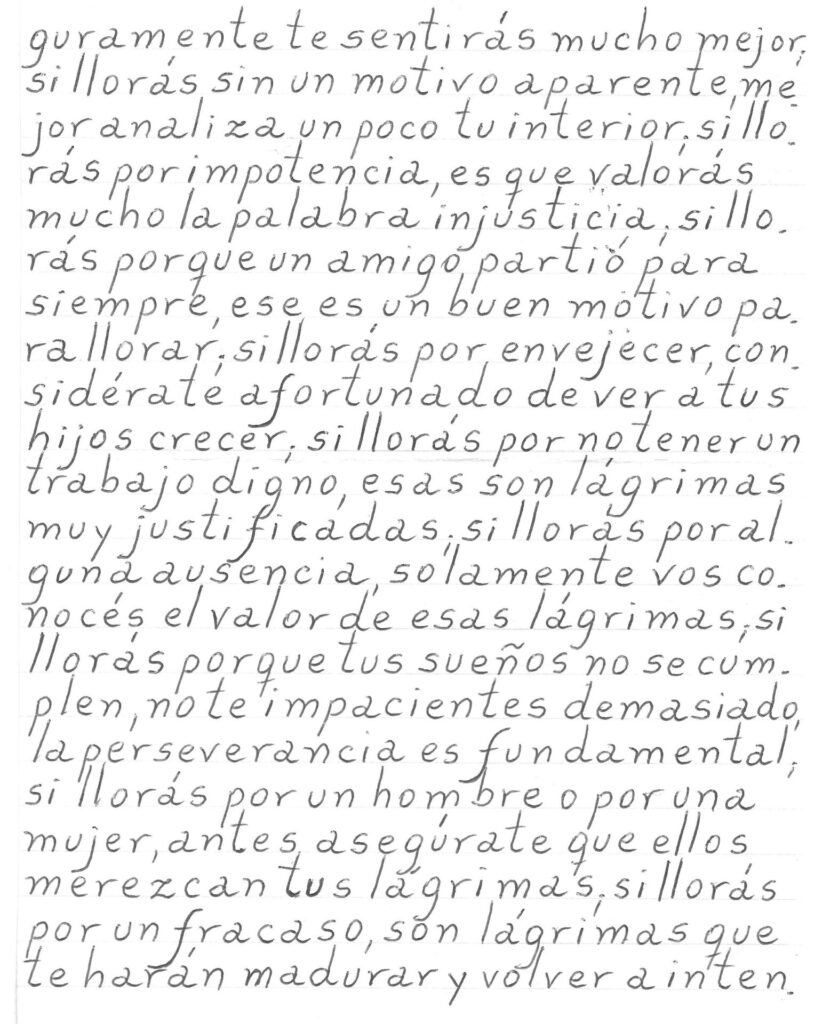 guramente te sentirás mucho mejor;
si llorás sin un motivo aparente, me
jor analiza un poco tu interior; si llo.
rás por impotencia, es que valorás
mucho la palabra injusticia; si llo.
rás porque un amigo partió para
siempre, ese es un buen motivo pa.
ra llorar; si llorás por envejecer, con.
sidérate afortunado de ver a tus
hijos crecer; si llorás por no tener un
trabajo digno, esas son lágrimas
muy justificadas; si llorás por al.
guna ausencia, solamente vos co.
nocés el valor de esas lágrimas; si
llorás porque tus sueños no se cum.
plen, no te impacientes demasiado,
la perseverancia es fundamental;
si llorás por un hombre o por una
mujer, antes asegúrate que ellos
merezcan tus lágrimas; si llorás
por un fracaso, son lágrimas que
te harán madurar y volver a inten.